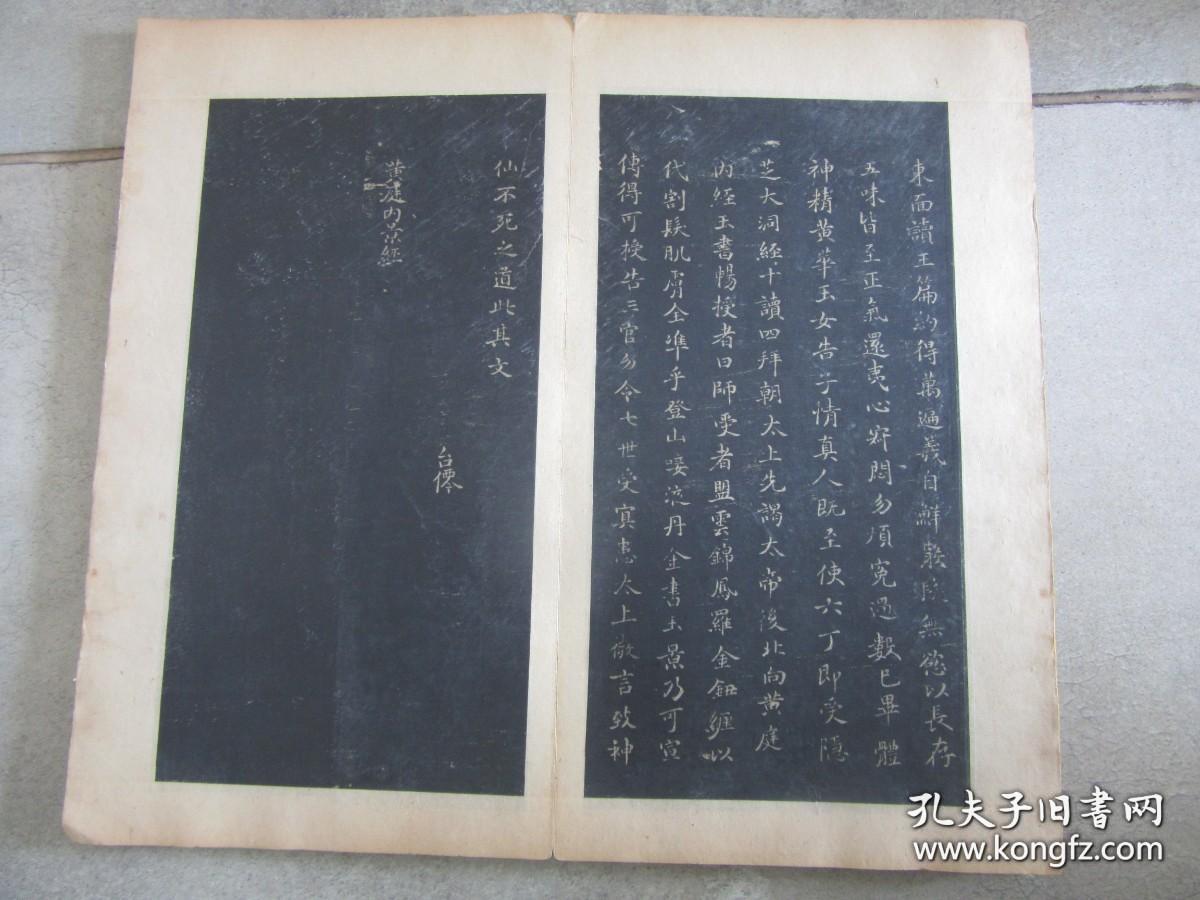 東面讀玉篇約得萬遍義自鮮散髮無慾以長存
五味皆至正氣還夷心寂悶勿煩冤過數已畢體
神精黃華玉女告子情真人既至使六丁即受隱
芝大洞經十讀四拜朝太上先謁太帝後北向黃庭
內經玉書暢授者曰師受者盟雲錦鳳羅金鈕纏以
代割髮肌膚全準乎登山唼液丹金書玉景乃可宣
傳得可授告三官勿令七世受冥患太上微言致神
仙不死之道此其文
黃庭內景經
孔夫子旧書网
www.kongfz.com